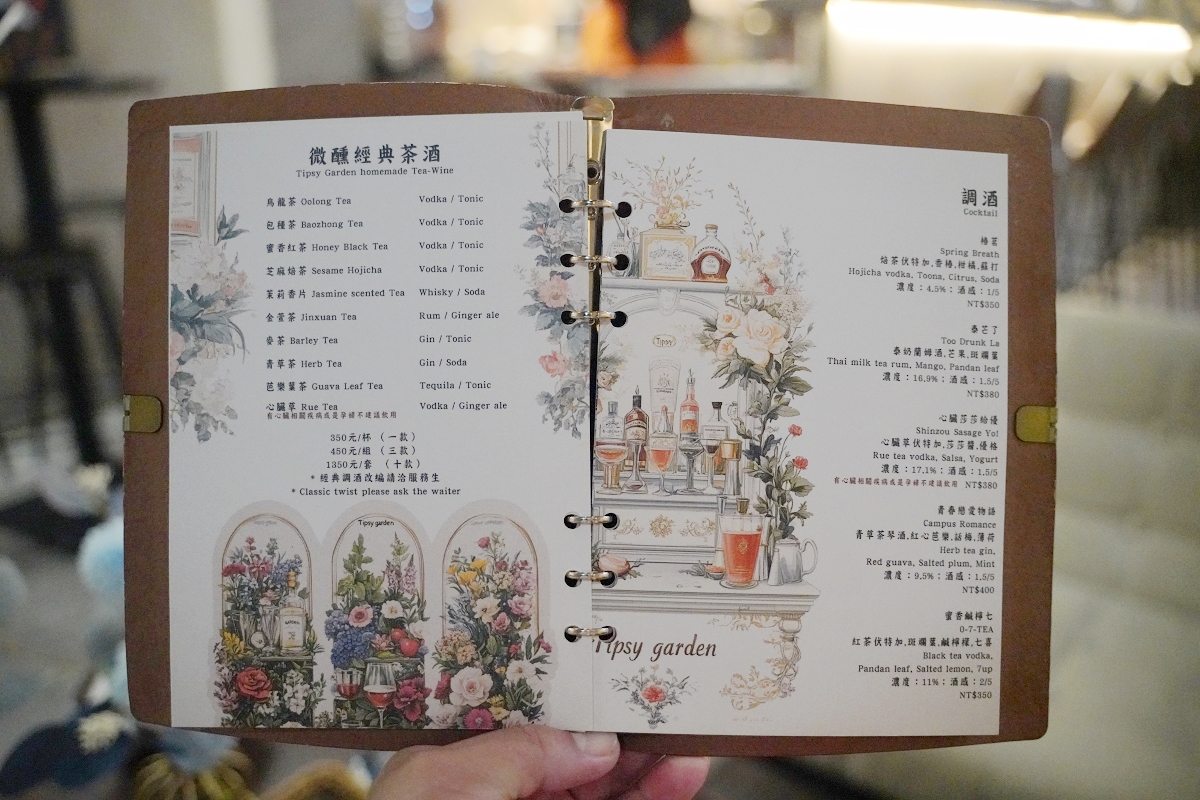 微醺經典茶酒
Tipsy Garden homemade Tea-Wine
烏龍茶 Oolong Tea Vodka / Tonic
包種茶 Baozhong Tea Vodka / Tonic
蜜香紅茶 Honey Black Tea Vodka / Tonic
芝麻焙茶 Sesame Hojicha Vodka / Tonic
茉莉香片 Jasmine scented Tea Whisky / Soda
金萱茶 Jinxuan Tea Rum / Ginger ale
麥茶 Barley Tea Gin / Tonic
青草茶 Herb Tea Gin / Soda
芭樂葉茶 Guava Leaf Tea Tequila / Tonic
心臟草 Rue Tea Vodka / Ginger ale
有心臟相關疾病或是孕婦不建議飲用
350元/杯 （一款）
450元/組 （三款）
1350元/套 （十款）
* 經典調酒改編請洽服務生
* Classic twist please ask the waiter
Tipsy garden
Tipsy
Tipsy garden
調酒
Cocktail
椿茗
Spring Breath
焙茶伏特加.香椿.柑橘.蘇打
Hojicha vodka, Toona, Citrus, Soda
濃度：4,5%；酒感：1/5
NT$350
泰芒了
Too Drunk La
泰奶蘭姆酒.芒果.斑斕葉
Thai milk tea rum, Mango, Pandan leaf
濃度：16,9%；酒感：1.5/5
NT$380
心臟莎莎給優
Shinzou Sasage Yo!
心臟草伏特加.莎莎醬.優格
Rue tea vodka, Salsa, Yogurt
濃度：17,1%；酒感：1.5/5
有心臟相關疾病或是孕婦不建議飲用 NT$380
青春戀愛物語
Campus Romance
青草茶琴酒.紅心芭樂.話梅.薄荷
Herb tea gin,
Red guava, Salted plum, Mint
濃度：9,5%；酒感：1,5/5
NT$400
蜜香鹹檸七
0-7-TEA
紅茶伏特加.斑斕葉.鹹檸檬.七喜
Black tea vodka,
Pandan leaf, Salted lemon, 7up
濃度：11%；酒感：2/5
NT$350